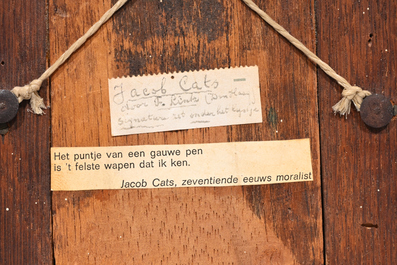 Jacob Cats
door F.
signature zit onder het
Het puntje van een gauwe pen
is 't felste wapen dat ik ken.
Jacob Cats, zeventiende eeuws moralist